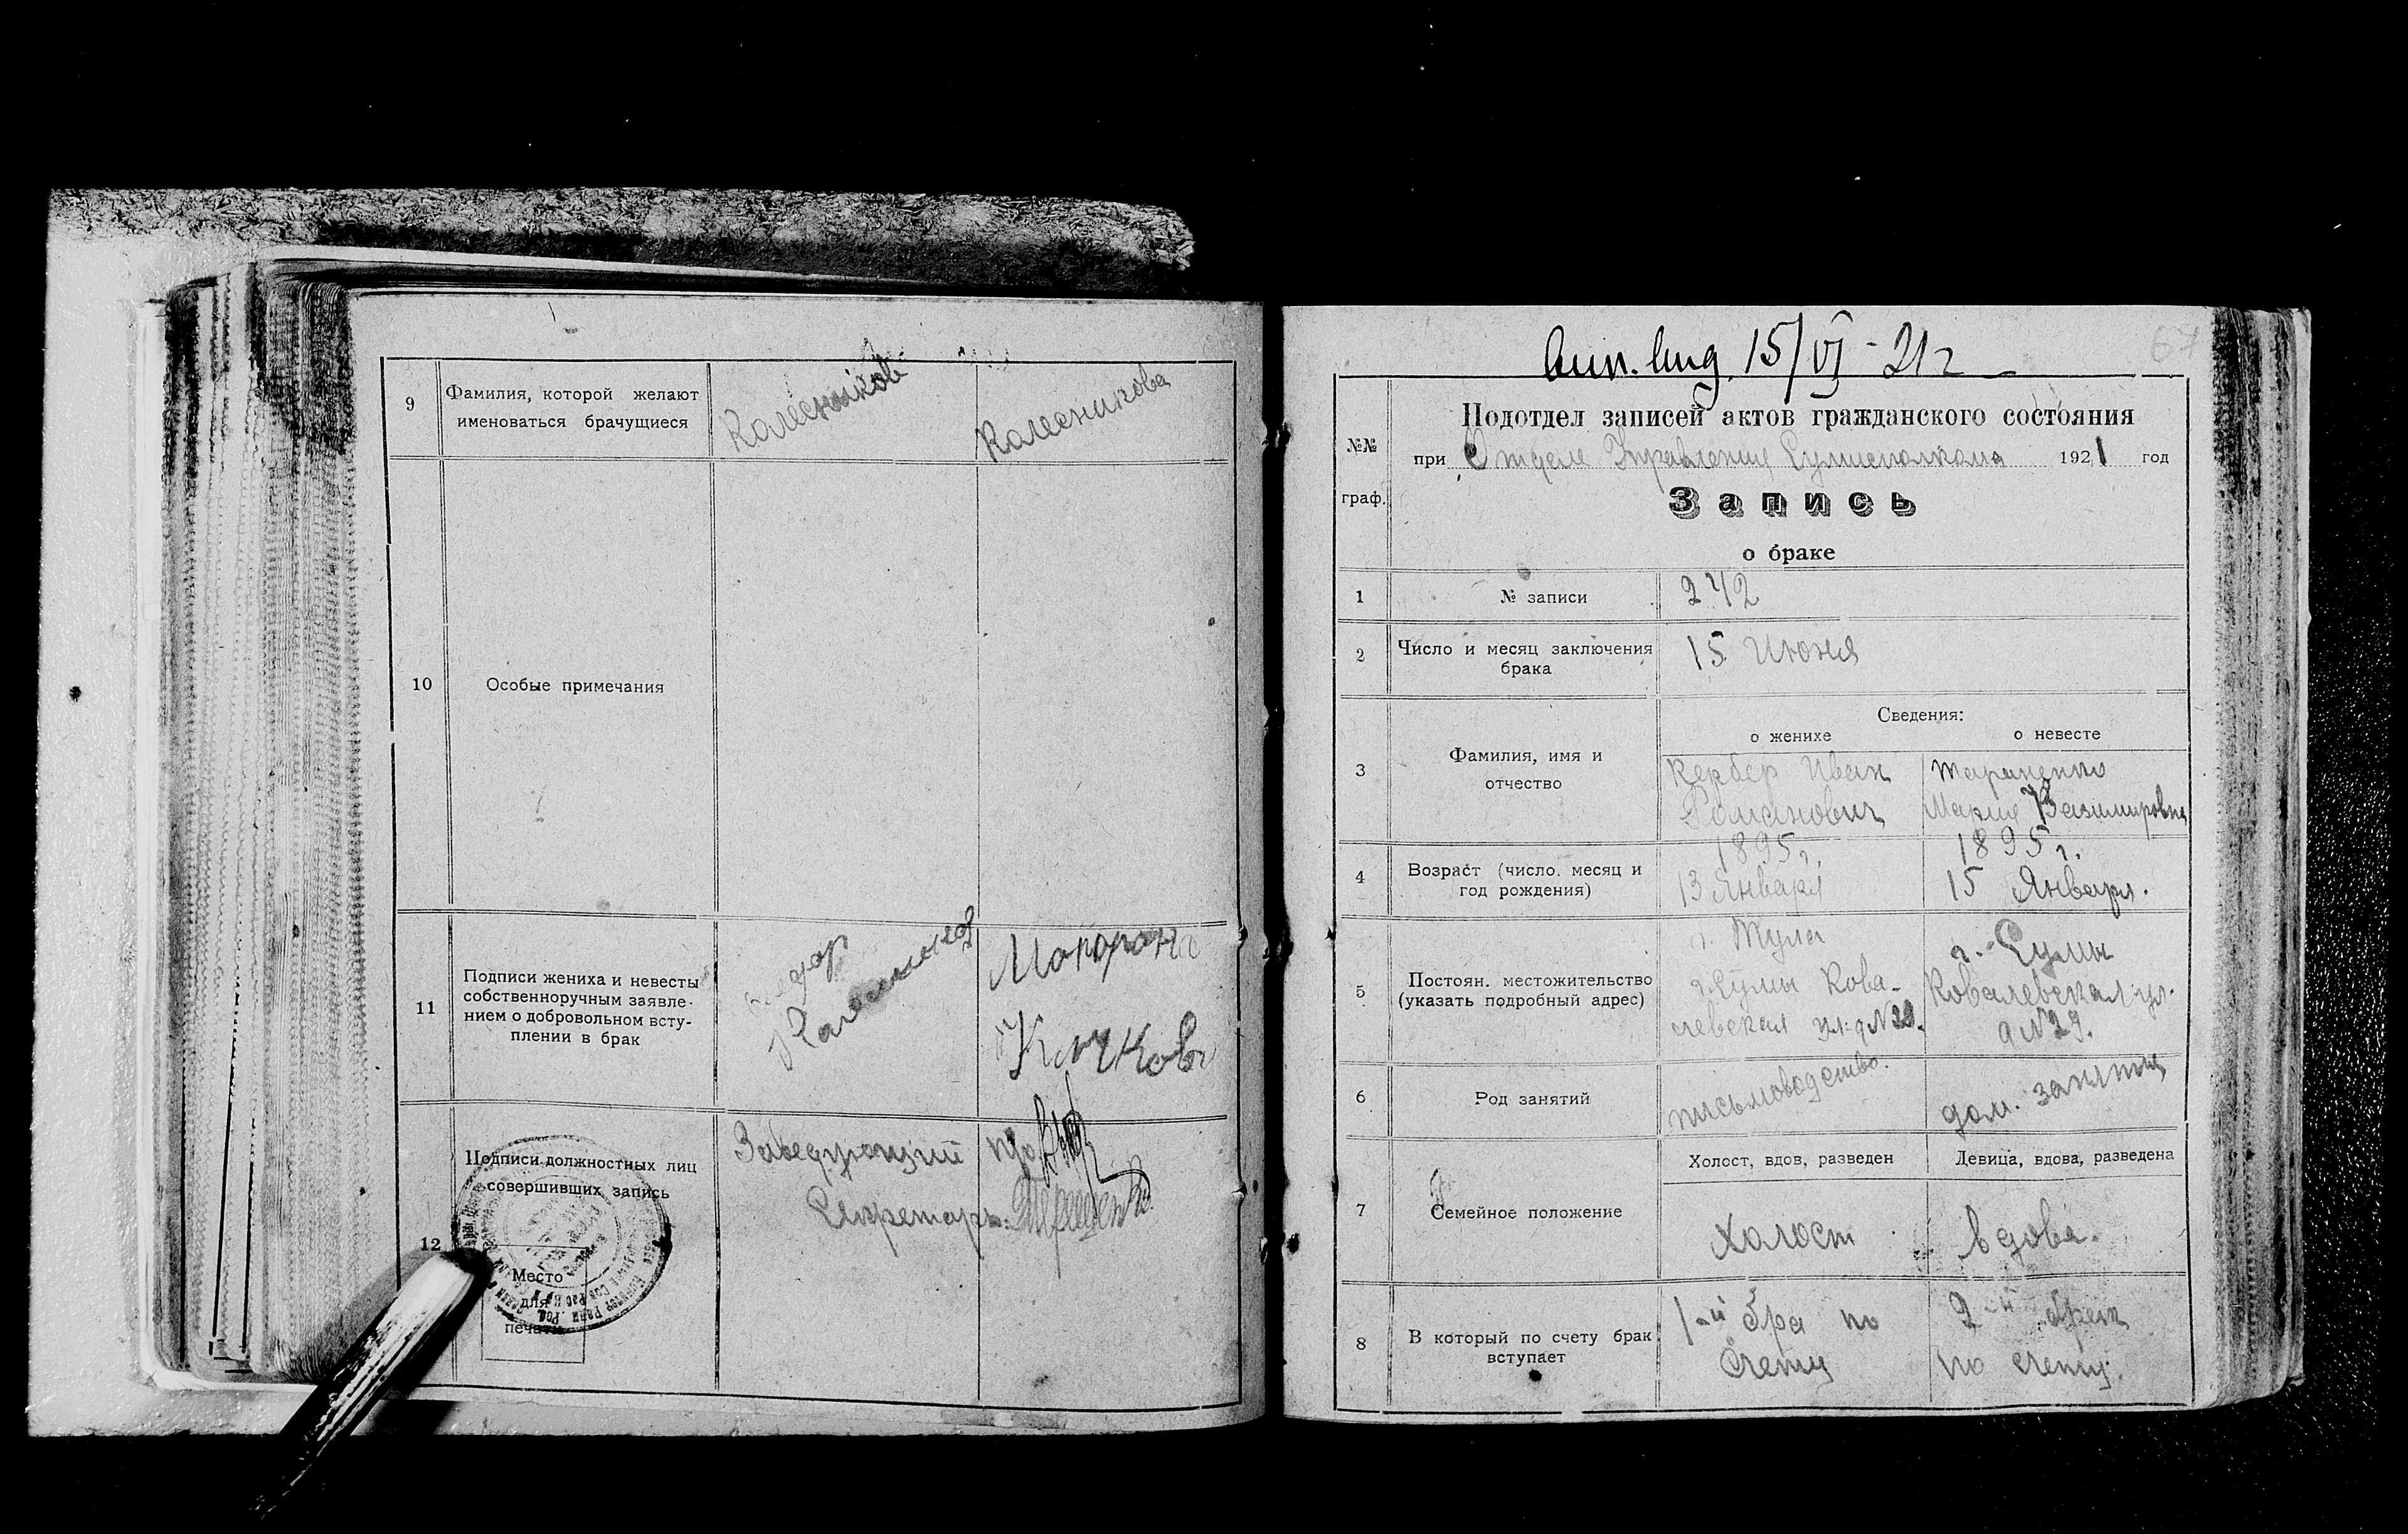 9
Фамилия, которой желают
именоваться брачущиеся
Колесников
Колесникова
10
Особые примечания
11
Подписи жениха и невесты
собственноручным заявле-
нием о добровольном всту-
плении в брак
Колесников
12
Подписи должностных лиц
совершивших запись
Место
для
печати
Заведующий
Секретарь:
67
15/VI - 21 г
№№
граф.
Подотдел записей актов гражданского состояния
при Отделе Управления Сумисполкома 1921 год
Запись
о браке
1
№ записи
242
2
Число и месяц заключения
брака
15 Июня
Сведения:
о женихе
о невесте
3
Фамилия, имя и
отчество
Кербер Иван
Романович
Тараненко
Мария Казимировна
4
Возраст (число. месяц и
год рождения)
1895 г.
13 Января
1895 г.
15 Января.
5
Постоян. местожительство
(указать подробный адрес)
г. Тула
г. Сумы Кова-
левская ул. д № 29.
г. Сумы
Ковалевская ул.
д № 29.
6
Род занятий
письмоводство.
дом. занятия
7
Семейное положение
Холост, вдов, разведен
Девица, вдова, разведена
Холост
вдова.
8
В который по счету брак
вступает
1-й бра по
счету
2-й брак
по счету.